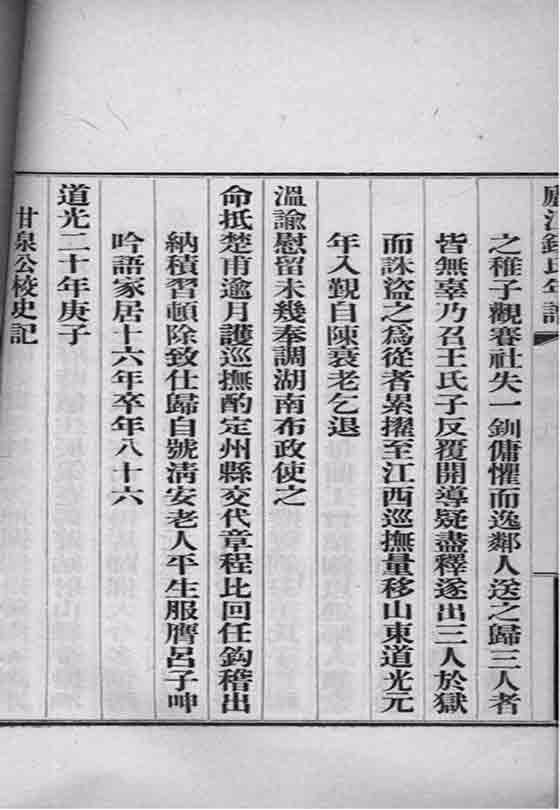 廬江錢氏年譜
之稚子觀賽社失一釧傭懼而逸鄰人送之歸三人者
皆無辜乃召王氏子反覆開導疑盡釋遂出三人於獄
而誅盜之為從者累擢至江西巡撫量移山東道光元
年入覲自陳衰老乞退
溫諭慰留未幾奉調湖南布政使之
命抵楚甫逾月護巡撫酌定州縣交代章程比回任鈎稽出
納積習頓除致仕歸自號淸安老人平生服膺呂子呻
吟語家居十六年卒年八十六
道光二十年庚子
甘泉公校史記